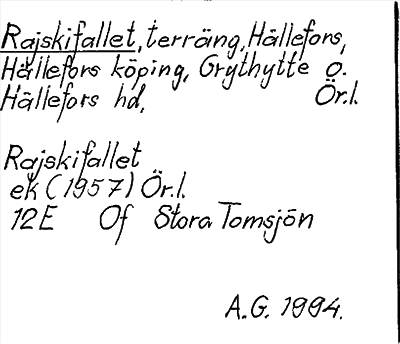 Rajskifallet, terräng, Hällefors,
Hällefors köping, Grythytte o.
Hällefors hd, Ör.l.
Rajskifallet
ek (1957) Ör.l.
12E Of Stora Tomsjön
A.G. 1994.